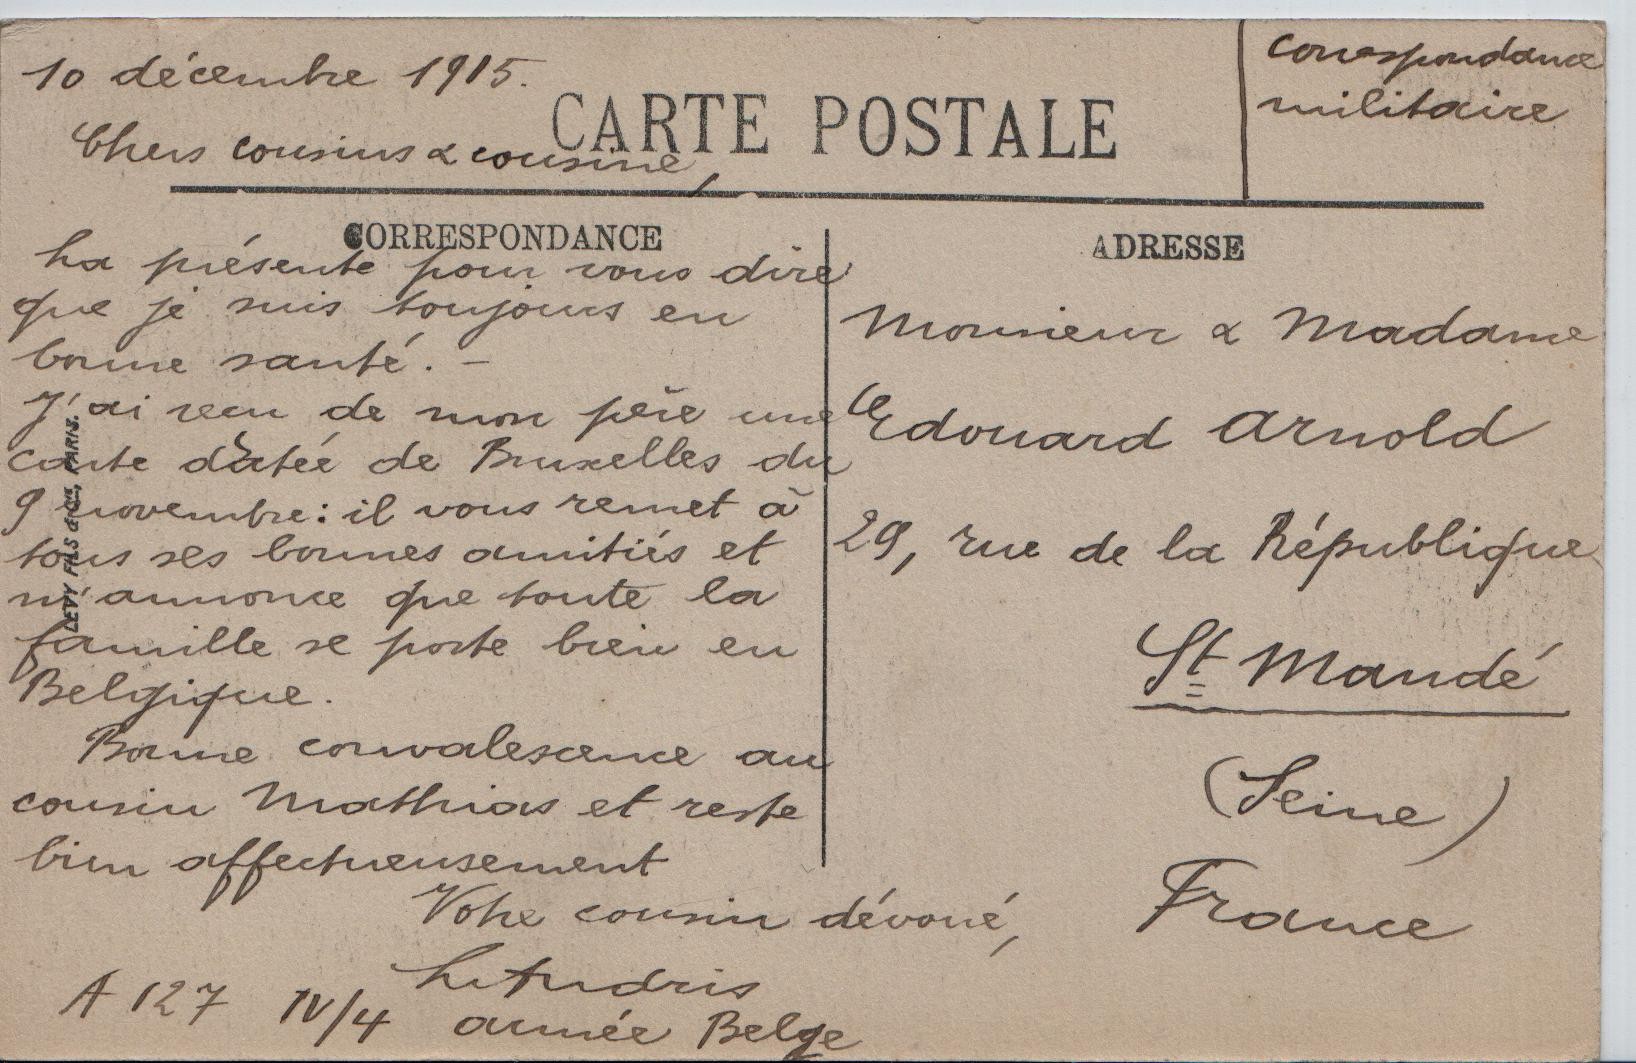 10 décembre 1915.
correspondance
militaire
CARTE POSTALE
Chers cousins & cousine,
CORRESPONDANCE
La présente pour vous dire
que je suis toujours en
bonne santé. -
J'ai recu de mon père une
carte datée de Bruxelles du
9 novembre: il vous remet à
tous ses bonnes amitiés et
m'annonce que toute la
famille se porte bien en
Belgique.
Bonne convalescence au
cousin Mathias et reste
bien affectueusement
Votre cousin dévoué,
A 127 IV/4 armée Belge
LEVY FILS & Cie, PARIS.
ADRESSE
Monsieur & Madame
Edouard Arnold
29, rue de la République
St Mandé
(Seine)
France